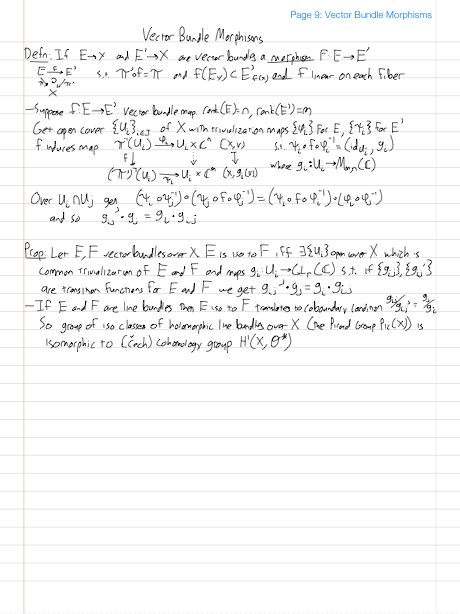 Page 9: Vector Bundle Morphisms
Vector Bundle Morphisms
Defn: If E→X and E'→X are vector bundles a morphism F: E→E'
E →f E' s.t. π'∘f=π and f(Eₓ) ⊂ E'f(x) and f linear on each fiber
π↘ ↙π'
X
—Suppose f: E→E' vector bundle map rank(E)=n, rank(E')=m
Get open cover {Uᵢ}ᵢ∈I of X with trivialization maps {φᵢ} for E, {ψᵢ} for E'
f induces map π⁻¹(Uᵢ) →φᵢ Uᵢ × ℂⁿ (x,v) s.t. ψᵢ∘f∘φᵢ⁻¹ = (id_Uᵢ, gᵢ)
f↓ ↓ ↓ where gᵢ: Uᵢ→Mₘ,ₙ(ℂ)
(π')⁻¹(Uᵢ) →ψᵢ Uᵢ × ℂᵐ (x, gᵢ(v))
Over Uᵢ∩Uⱼ get (ψᵢ∘ψⱼ⁻¹)∘(ψⱼ∘f∘φⱼ⁻¹) = (ψᵢ∘f∘φᵢ⁻¹)∘(φᵢ∘φⱼ⁻¹)
and so gᵢⱼ'·gⱼ = gᵢ·gᵢⱼ
Prop: Let E, F vector bundles over X E is iso to F iff ∃{Uᵢ} open cover X which is
common trivialization of E and F and maps gᵢ: Uᵢ→GLᵣ(ℂ) s.t. if {gᵢⱼ}, {gᵢⱼ'}
are transition functions for E and F we get gᵢⱼ'·gⱼ = gᵢ·gᵢⱼ
—If E and F are line bundles then E iso to F translates to coboundary condition gᵢⱼ/gᵢⱼ' = gⱼ/gᵢ
So group of iso classes of holomorphic line bundles over X (the Picard Group Pic(X)) is
isomorphic to (Čech) cohomology group H¹(X, O*)